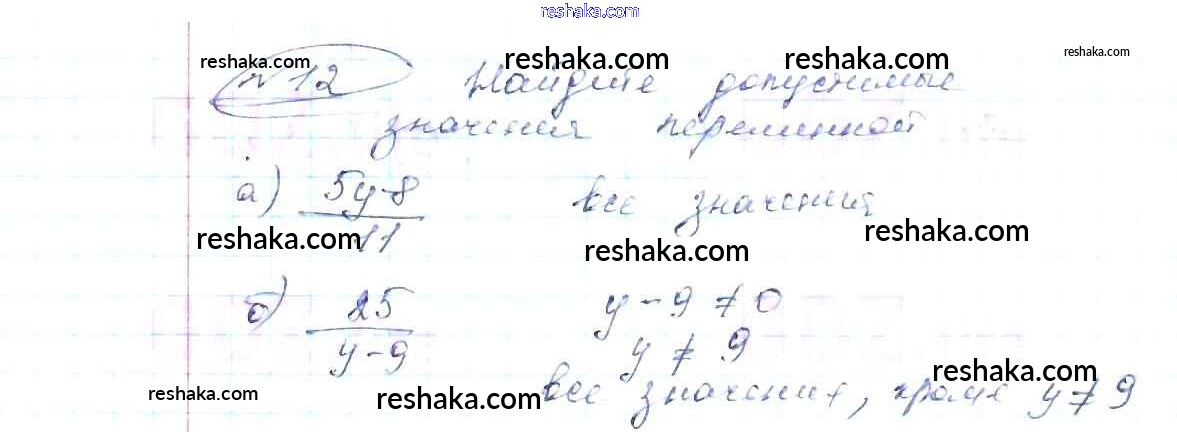 reshaka.com
reshaka.com reshaka.com reshaka.com reshaka.com
№ 12 Найдите допустимые
значения переменной
а) 5y-8 все значения
11
reshaka.com reshaka.com reshaka.com
б) 25 y - 9 ≠ 0
y - 9 y ≠ 9
reshaka.com reshaka.com reshaka.com
все значения, кроме y ≠ 9